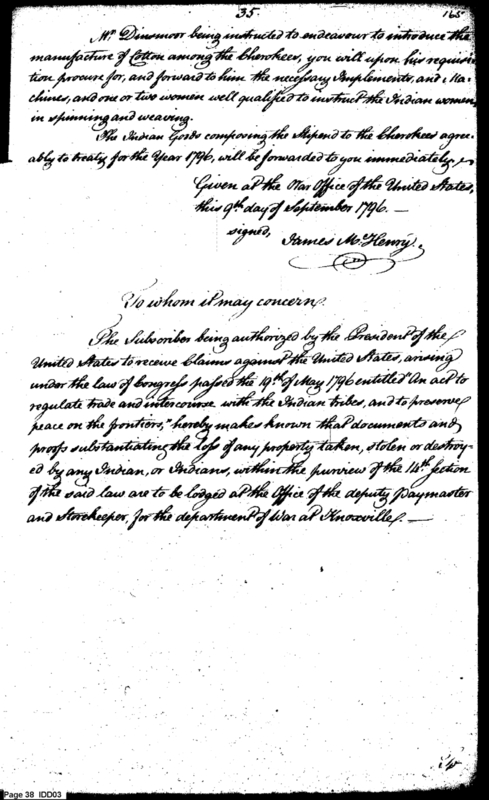 35.
165
Mr. Dinsmoor being instructed to endeavour to introduce the
manufacture of Cotton among the Cherokees, you will upon his requisi-
tion procure for, and forward to him the necessary Implements, and Ma-
chines, and one or two women well qualified to instruct the Indian women
in spinning and weaving.
The Indian Goods composing the Stipend to the Cherokees agree-
ably to treaty for the Year 1796, will be forwarded to you immediately.
Given at the War Office of the United States,
this 9th day of September 1796. —
signed,
James McHenry.
To whom it may concern.
The Subscriber being authorized by the President of the
United States to receive Claims against the United States, arising
under the law of Congress passed the 19th of May 1796 entitled "An act to
regulate trade and intercourse with the Indian tribes, and to preserve
peace on the frontiers," hereby makes known that documents and
proofs substantiating the loss of any property taken, stolen or destroy-
ed by any Indian, or Indians, within the purview of the 14th Section
of the said law are to be lodged at the Office of the deputy Paymaster
and Storekeeper, for the department of War at Knoxville. —
Page 38 IDD03